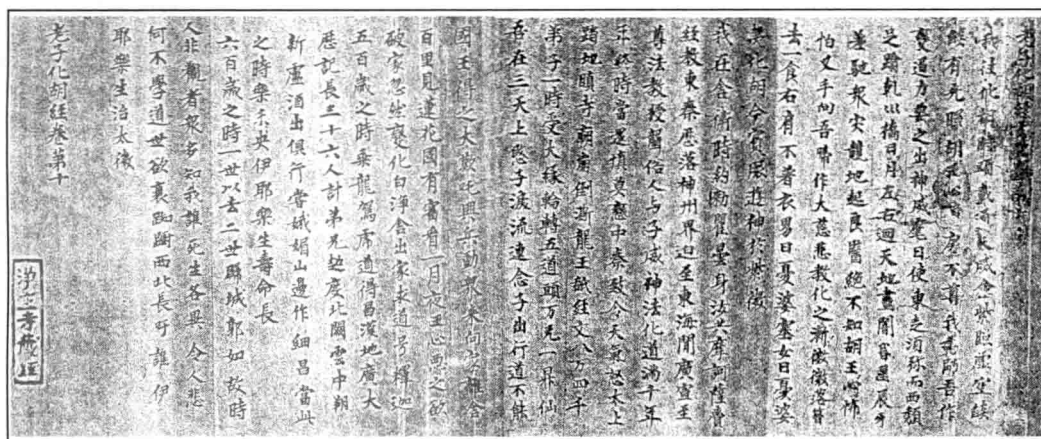 老子化胡經玄歌卷第十
我往化胡時頭戴通天威金紫照虛空焰
焰有光胡王心
不尊我為師吾作
變通力要之出神威麾日使東走須弥而西頹
足蹹乾巛橋日月左右迴天地晝闇昏星辰牙
差馳眾災競地起良醫絕不知胡王心怖
怕叉手向吾啼作大慈悲教化之漸微微落簪
去一食右肩不著衣男曰憂婆塞女曰憂婆
夷化胡今賓服遊神於紫微
我在舍衛時約勑瞿曇身汝共摩訶薩賷
經教東秦歷落神州界迫至東海間廣宣至
尊法教授聾俗人与子威神法化道滿千年
年終時當還慎莫戀中秦致令天帝怒太上
踏地瞋寺廟崩倒澌龍王舐經文八万四千
弟子一時受大緣輪轉五道頭万无一昇仙
吾在三天上愍子淚流連念子出行道不能
國王得之大歡 興兵動眾來向 舍
百里見蓮花國有 一月夜王心惡之欲
破家忽然變化白淨舍出家求道号釋迦
五百歲之時乘龍駕虎道得昌漢地廣大
歷記長三十六人計弟兄 度北闕雲中翱
新盧酒出俱行當娥媚山邊作細昌當此
之時樂未央伊耶樂生壽命長
六百歲之時一世以去二世歸城郭如故時
人非觀者眾多知我誰死生各異令人悲
何不學道世欲衰踟躕西北長吁誰伊
耶樂生治太微
老子化胡經卷第十
淨土寺藏經